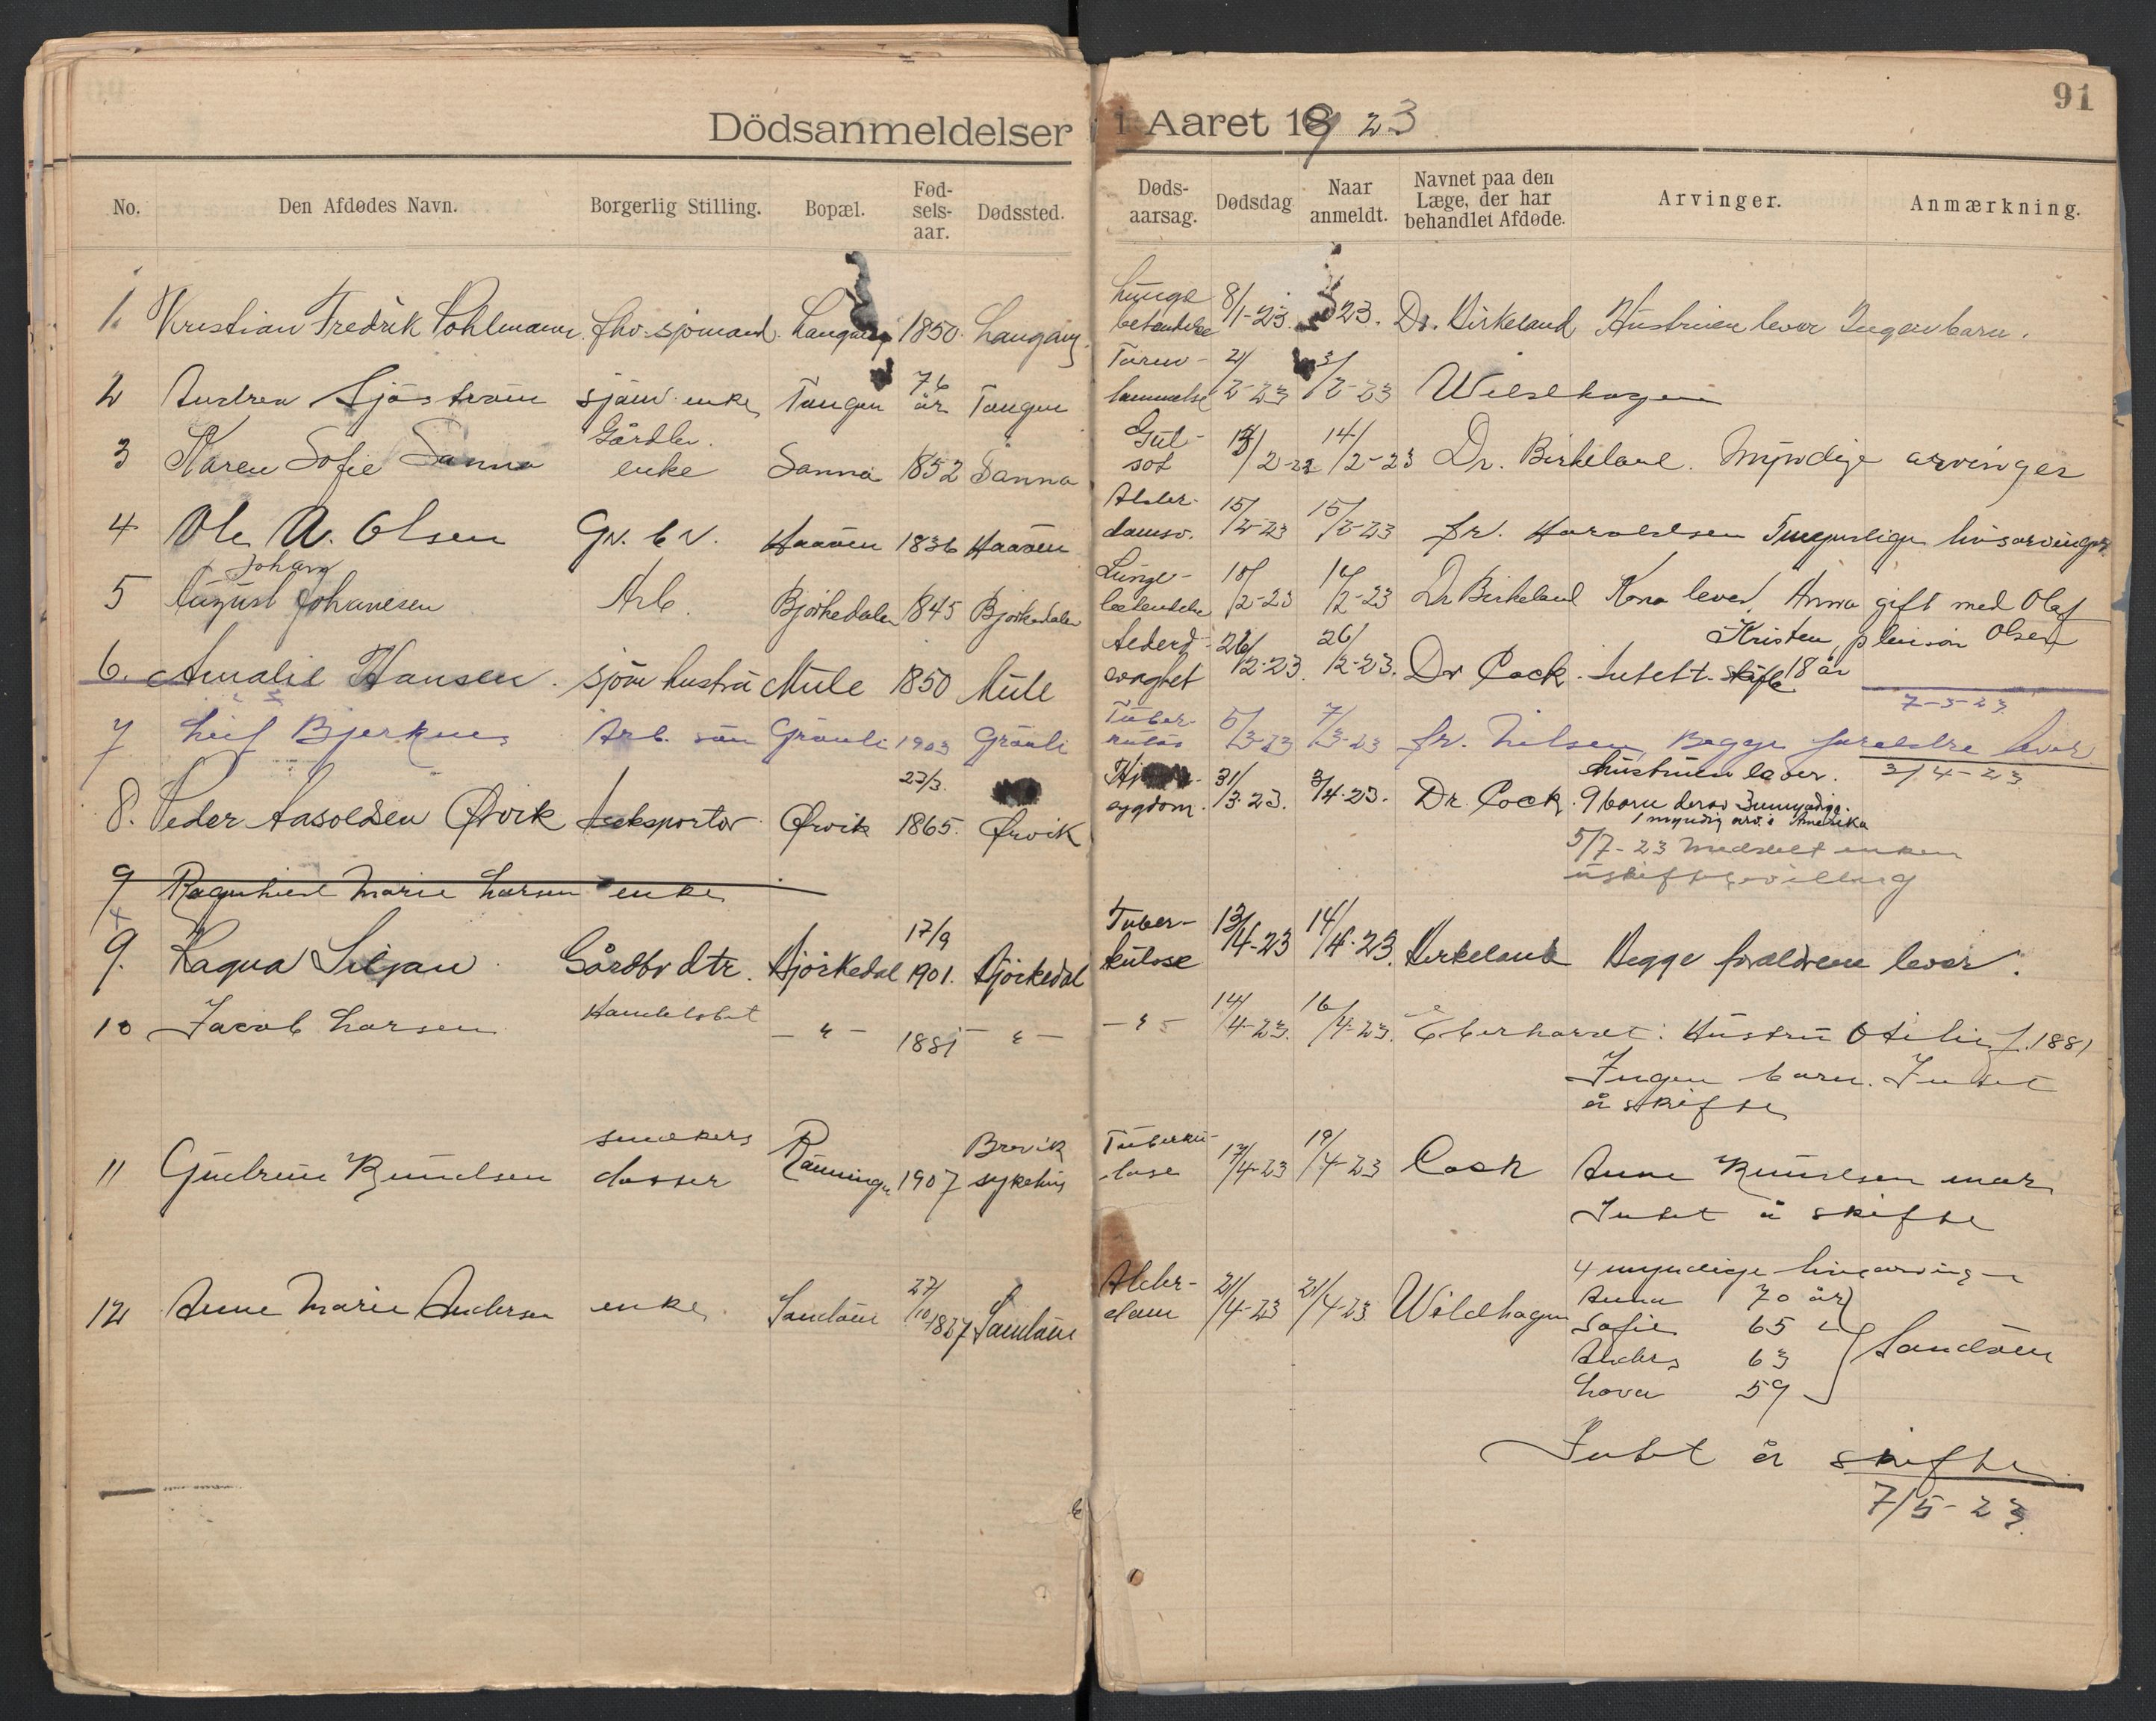 91
Dödsanmeldelser i Aaret 1923
No. Den Afdødes Navn. Borgerlig Stilling. Bopæl. Fødselsaar. Dødssted. Dødsaarsag. Dødsdag Naar anmeldt. Navnet paa den Læge, der har behandlet Afdøde. Arvinger. Anmærkning.
1. Kristian Fredrik Pohlmann. fhv. sjömand. Langang 1850. Langang. Lunge betendelse 8/1-23. 23. Dr. Birkeland Hustruen lever Ingen barn.
2 Andrea Sjöström sjöm. enke Tangen 76 år Tangen Tarm- lammelse 2/2-23 3/2-23 Wildhagen
3 Karen Sofie Sanna Gårdbr. enke Sanna 1852 Sanna Gul- sot 13/2-23 14/2-23 Dr. Birkeland. Myndige arvinger
4 Ole A. Olsen Gv. br. Haaøen 1836 Haaøen Alder- domsv. 15/2-23 15/2-23 fr. Haraldsen Myndige livsarvinger
5 Johan August Johanesen Arb. Bjørkedalen 1845 Bjørkedalen Lunge- betendelse 10/2-23 16/2-23 Dr Birkeland Kona lever. Anna gift med Olaf
Kristen plleisön Olsen
6. Amalie Hansen. sjöm hustru Mule 1850 Mule Alderd- svaghet 26/2-23. 26/2-23. Dr Cock. Intet t. skifte 18 år
7-3-23
7 Leif Bjerknes Arb. sön Grönli 1903 Grönli Tuber- kulos 5/3-23 7/3-23 fr. Nilsen Begge foreldre lever
3/4-23
8. Peder Aasoldsen Ørvik Iseksportør Ørvik 23/3. 1865. Ørvik Hj sygdom. 31/3-23. 3/4-23. Dr. Cock. Hustruen lever.
9 barn derav 3 umyndige.
1 myndig arv. i Amerika
5/7-23 Meddelt enken
uskiftebevilling
9 Ragnhild Marie Larsen enke
9. Ragna Siljan Gårdbr dtr. Bjørkedal 17/9 1901. Bjørkedal Tuber- kulose 13/4-23 14/4-23. Birkeland Begge foreldrene lever.
10 Jacob Larsen Handelsbet - " - 1881 - " - - " - 14/4-23. 16/4-23. Eberhardt. Hustru Otilie f. 1881
Ingen barn. Intet
å skifte
11 Gudrun Knudsen snekers datter Rönningen 1907 Brevik sykehus Tuberku- lose 17/4-23 19/4-23 Cock Anne Knudsen mor
Intet å skifte
12 Anne Marie Andersen enke. Sandöen 27/10 1827 Sandöen Alder- dom 21/4-23 21/4-23 Wildhagen 4 myndige livsarvinger
Anna 70 år
Sofie 65 "
Anders 63
Lova 59
Sandöen
Intet å skifte
7/5-23.